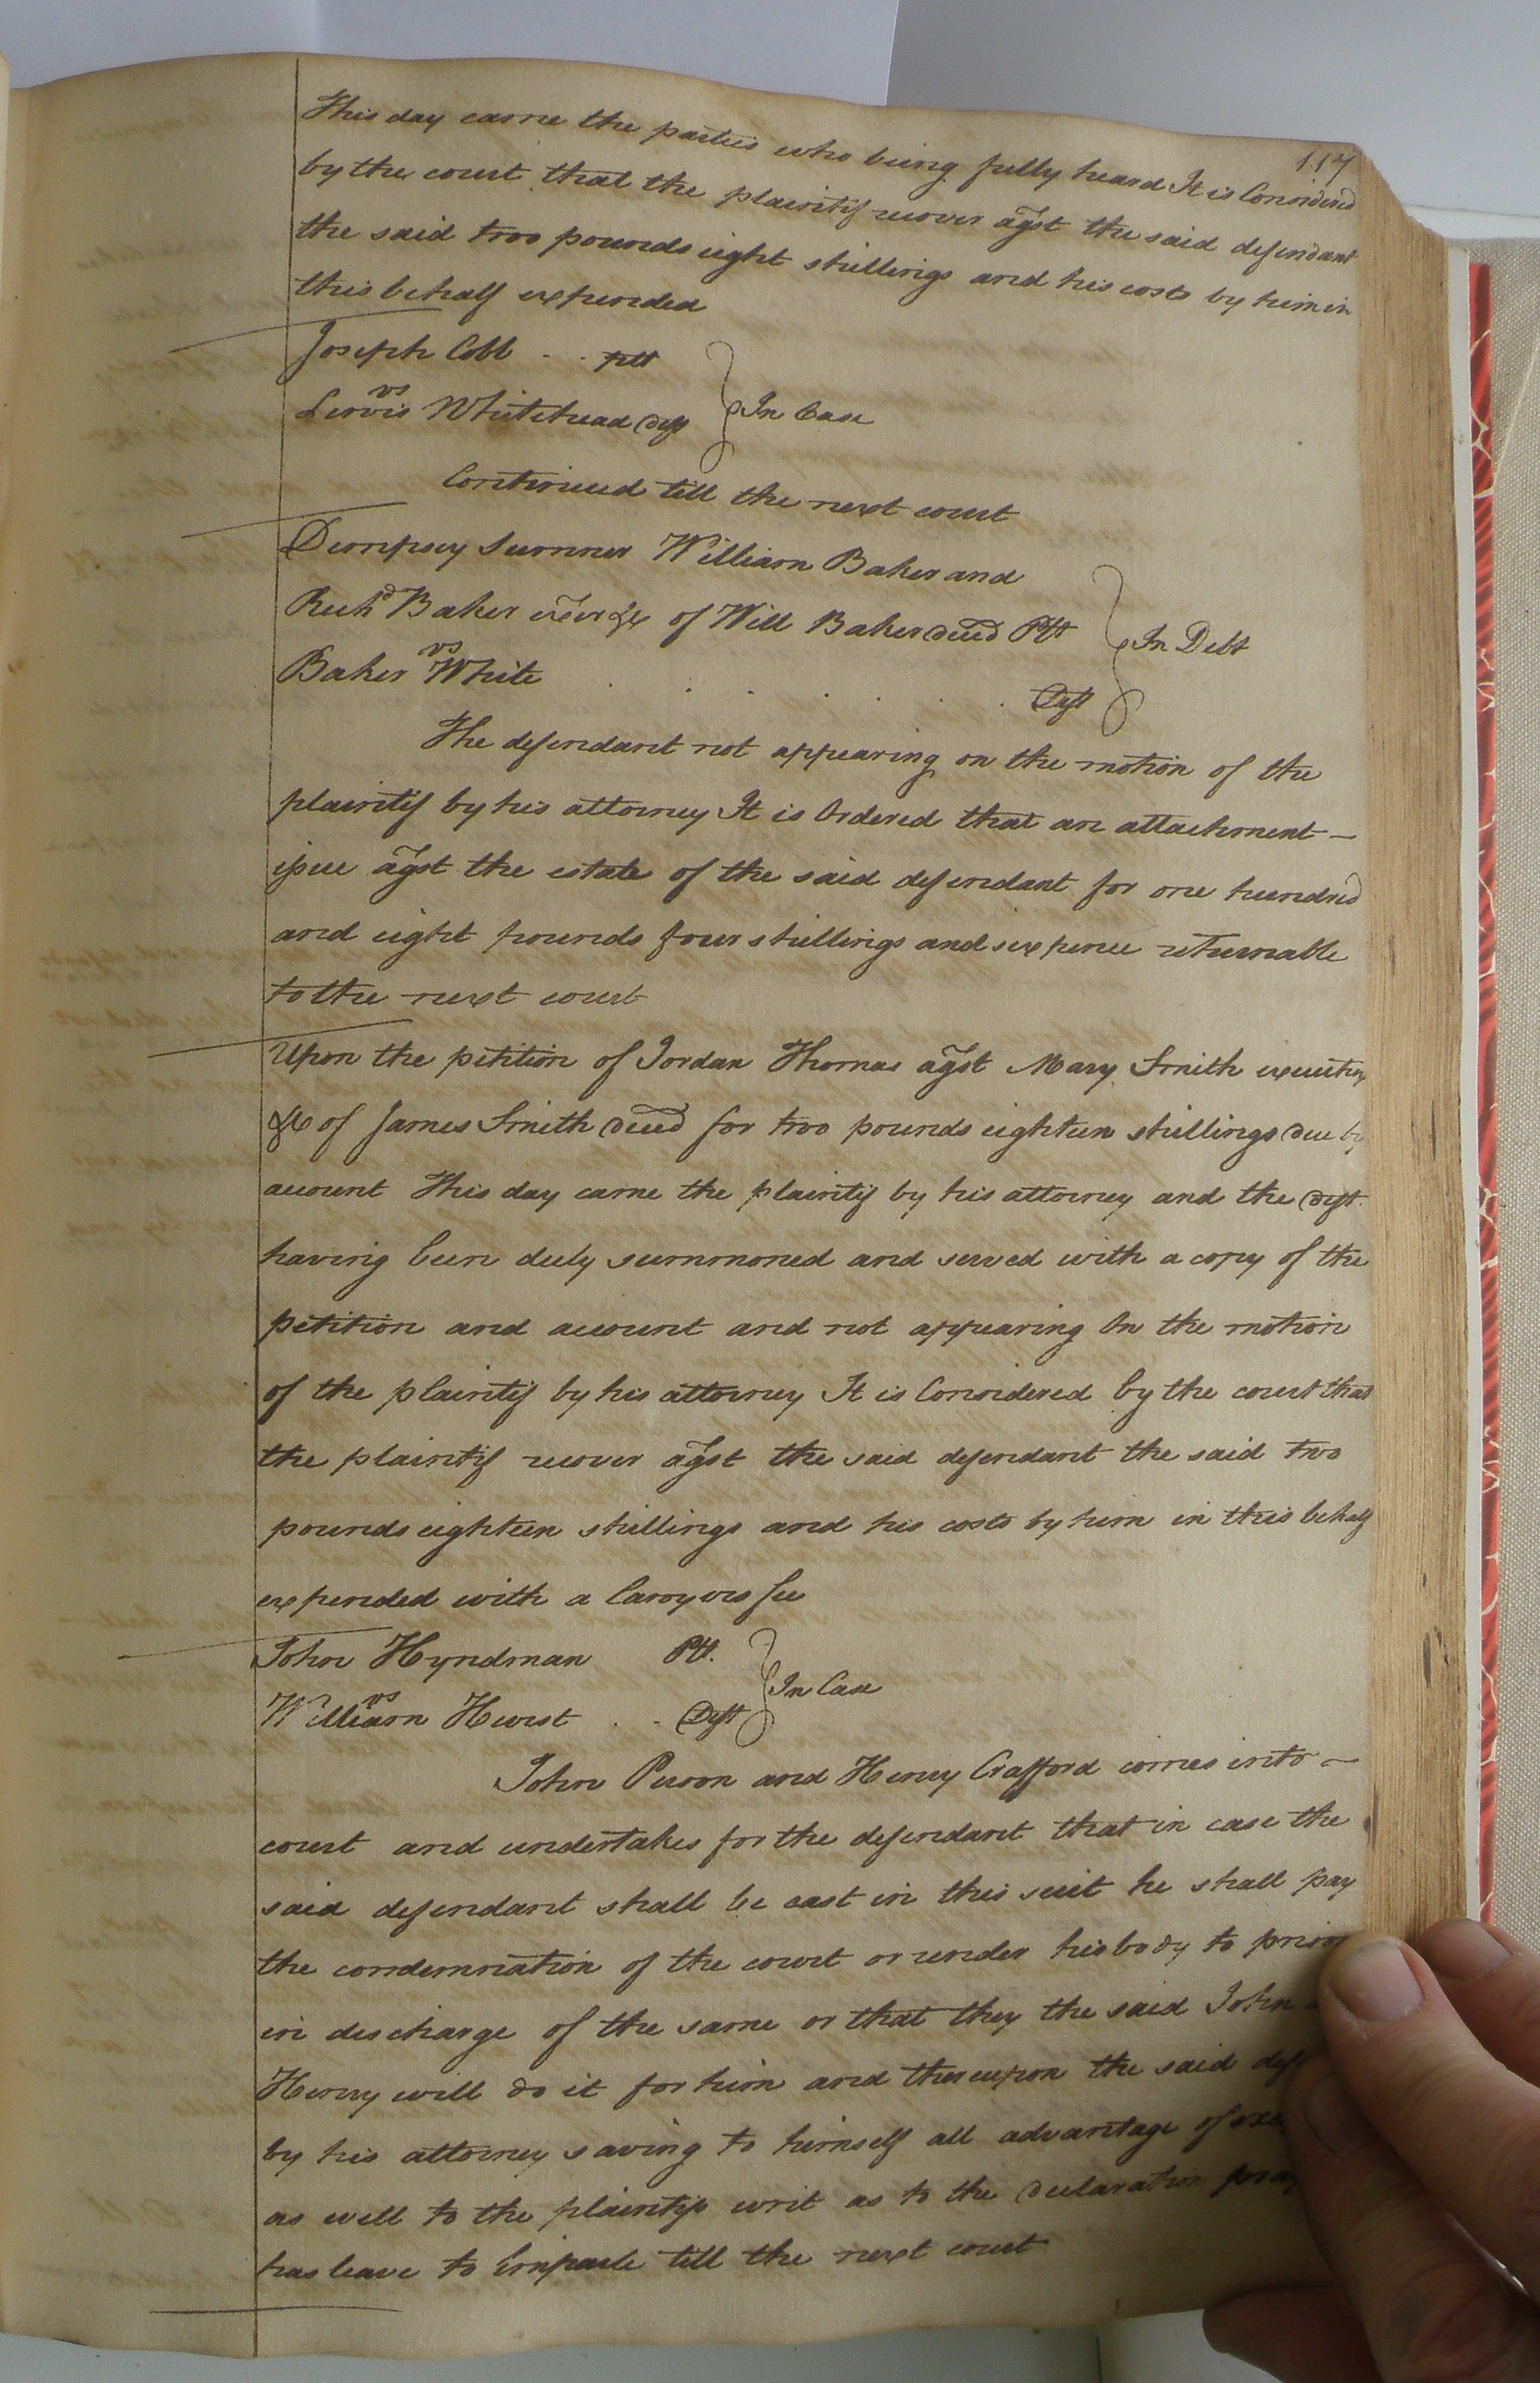 117
This day came the parties who being fully heard It is Considered
by the court that the plaintif recover agst the said defendant
the said two pounds eight shillings and his costs by him in
this behalf expended
Joseph Cobb . . pltt
vs
Lewis Whitehead deft
In Case
Continued till the next court
Dempsey Sumner William Baker and
Richd Baker exers &c of Will Baker decd Pltt
vs
In Debt
Baker White . . . . . . Deft
The defendant not appearing on the motion of the
plaintif by his attorney It is Ordered that an attachment -
issue agst the estate of the said defendant for one hundred
and eight pounds four shillings and sixpence returnable
to the next court
Upon the petition of Jordan Thomas agst Mary Smith executrix
&c of James Smith decd for two pounds eighteen shillings due by
account This day came the plaintif by his attorney and the deft.
having been duly summoned and served with a copy of the
petition and account and not appearing On the motion
of the plaintif by his attorney It is Considered by the court that
the plaintif recover agst the said defendant the said two
pounds eighteen shillings and his costs by him in this behalf
expended with a lawyers fee
John Hyndman Plt.
vs
In Case
William Hurst . . Deft
John Person and Henry Crafford comes into -
court and undertakes for the defendant that in case the
said defendant shall be cast in this suit he shall pay
the condemnation of the court or render his body to prison
in discharge of the same or that they the said John
Henry will do it for him and thereupon the said
by his attorney saving to himself all advantage of
as well to the plaintifs writ as to the declaration
has leave to Emparle till the next court